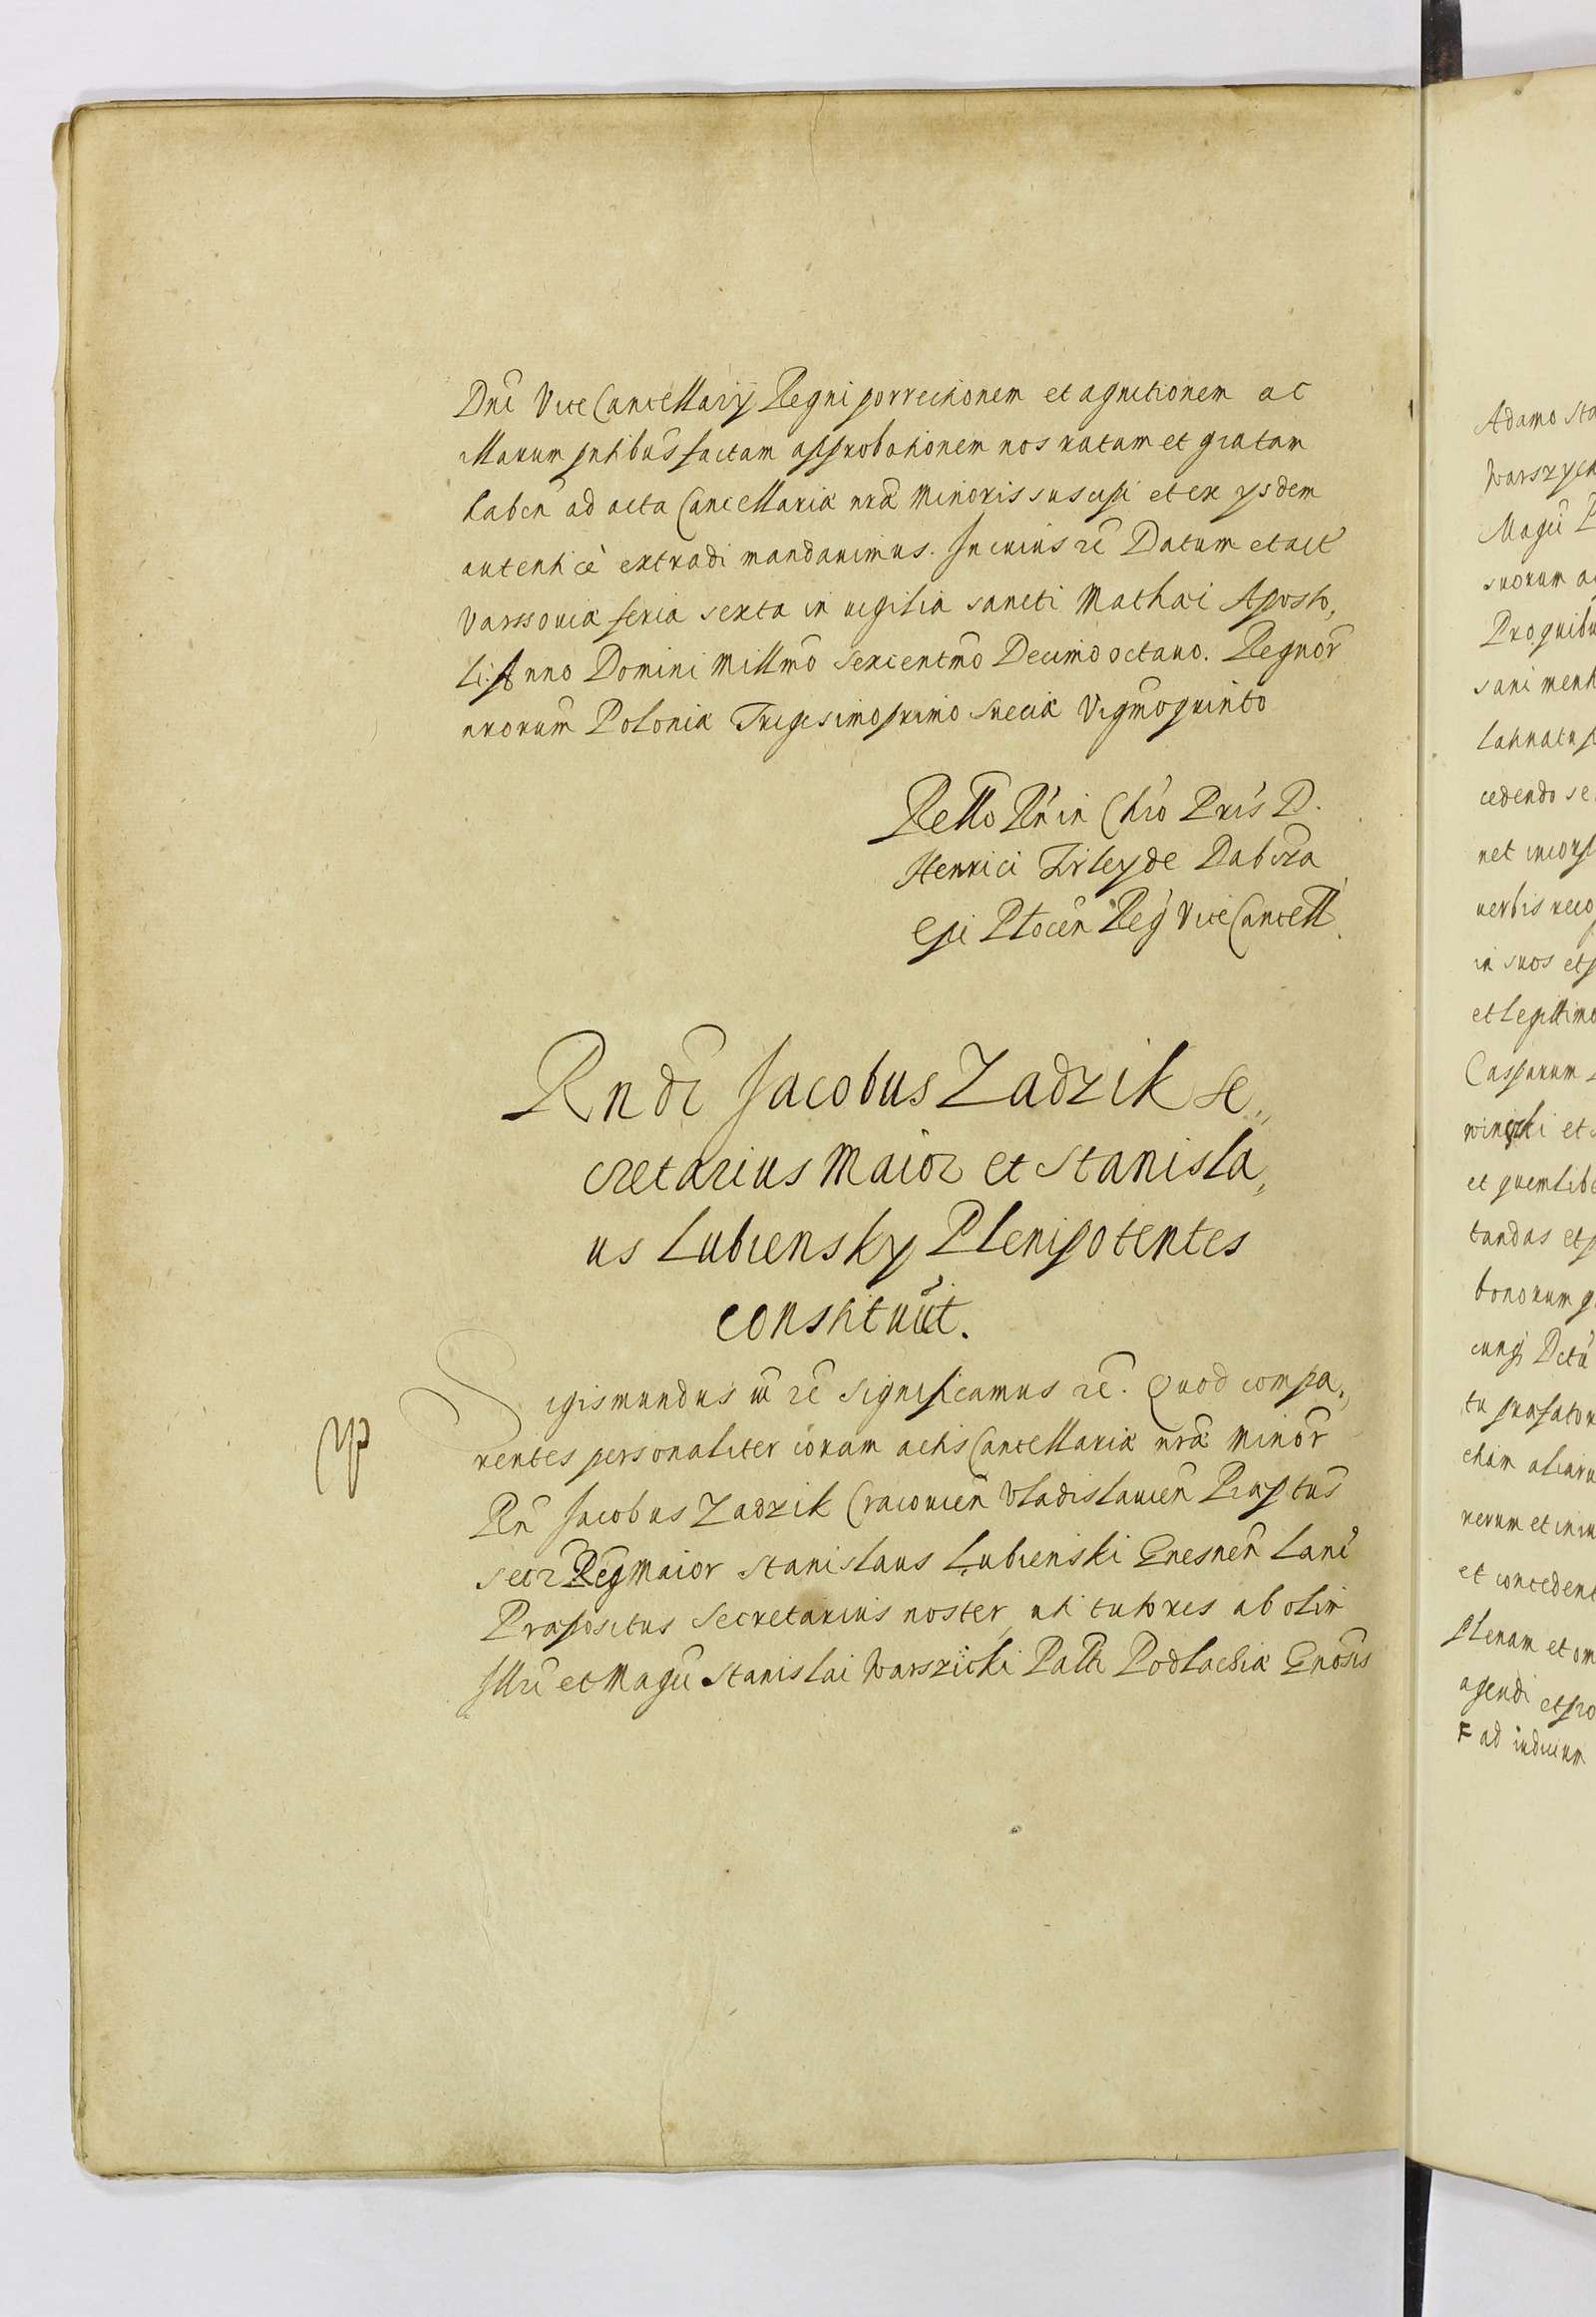 Dnĩ ViceCancellarij Regni porrectionem et agnitionem ac
illarum pntibus factam approbationem nos ratam et gratam
haben ad acta Cancellariæ nræ Minoris suscipi et ex ysdem
autenticè extradi mandauimus. In cuius rẽ Datum et act
Varssouiæ feria sexta in uigilia sancti Mathæi Aposto,
li. Anno Domini Millmõ Sexcentmõ Decimo octauo. Regnor
nrorum Poloniæ Trigesimoprimo Sueciæ Vigmõquinto
Rello Rñ in Chro Pris D.
Henrici Firley de Dabrõ
Epi Plocen Reg ViceCancell.
Rndi Jacobus Zadzik Se,,
cretarius Maior et Stanisla,,
us Lubiensky Plenipotentes
constituũt.
Sigismundus iii rẽ Significamus rẽ. Quod compa,,
rentes personaliter coram actis Cancellariæ nræ Minor
Rñ Jacobus Zadzik Cracouien Vladislauien Præptus
Secr Reg Maior Stanislaus Lubienski Gnesnen Lanĩ
Præpositus Secretarius noster, uti tutores ab olim
Illri et Magci Stanislai Warszicki Palti Podlachiæ Gnosis
Adamo Sta
Warszyck
Magci P
suorum a
Pro quibu
sani ment
cedendo se
net incorp
uerbis reco
in suos et p
et legittimo
Casparum
et quemlibe
tandas et p
bonorum q
cunq Dctũ
tu præfator
etiam aliaru
rerum et iniu
et concedent
plenam et om
agendi et pro
F ad iudicium